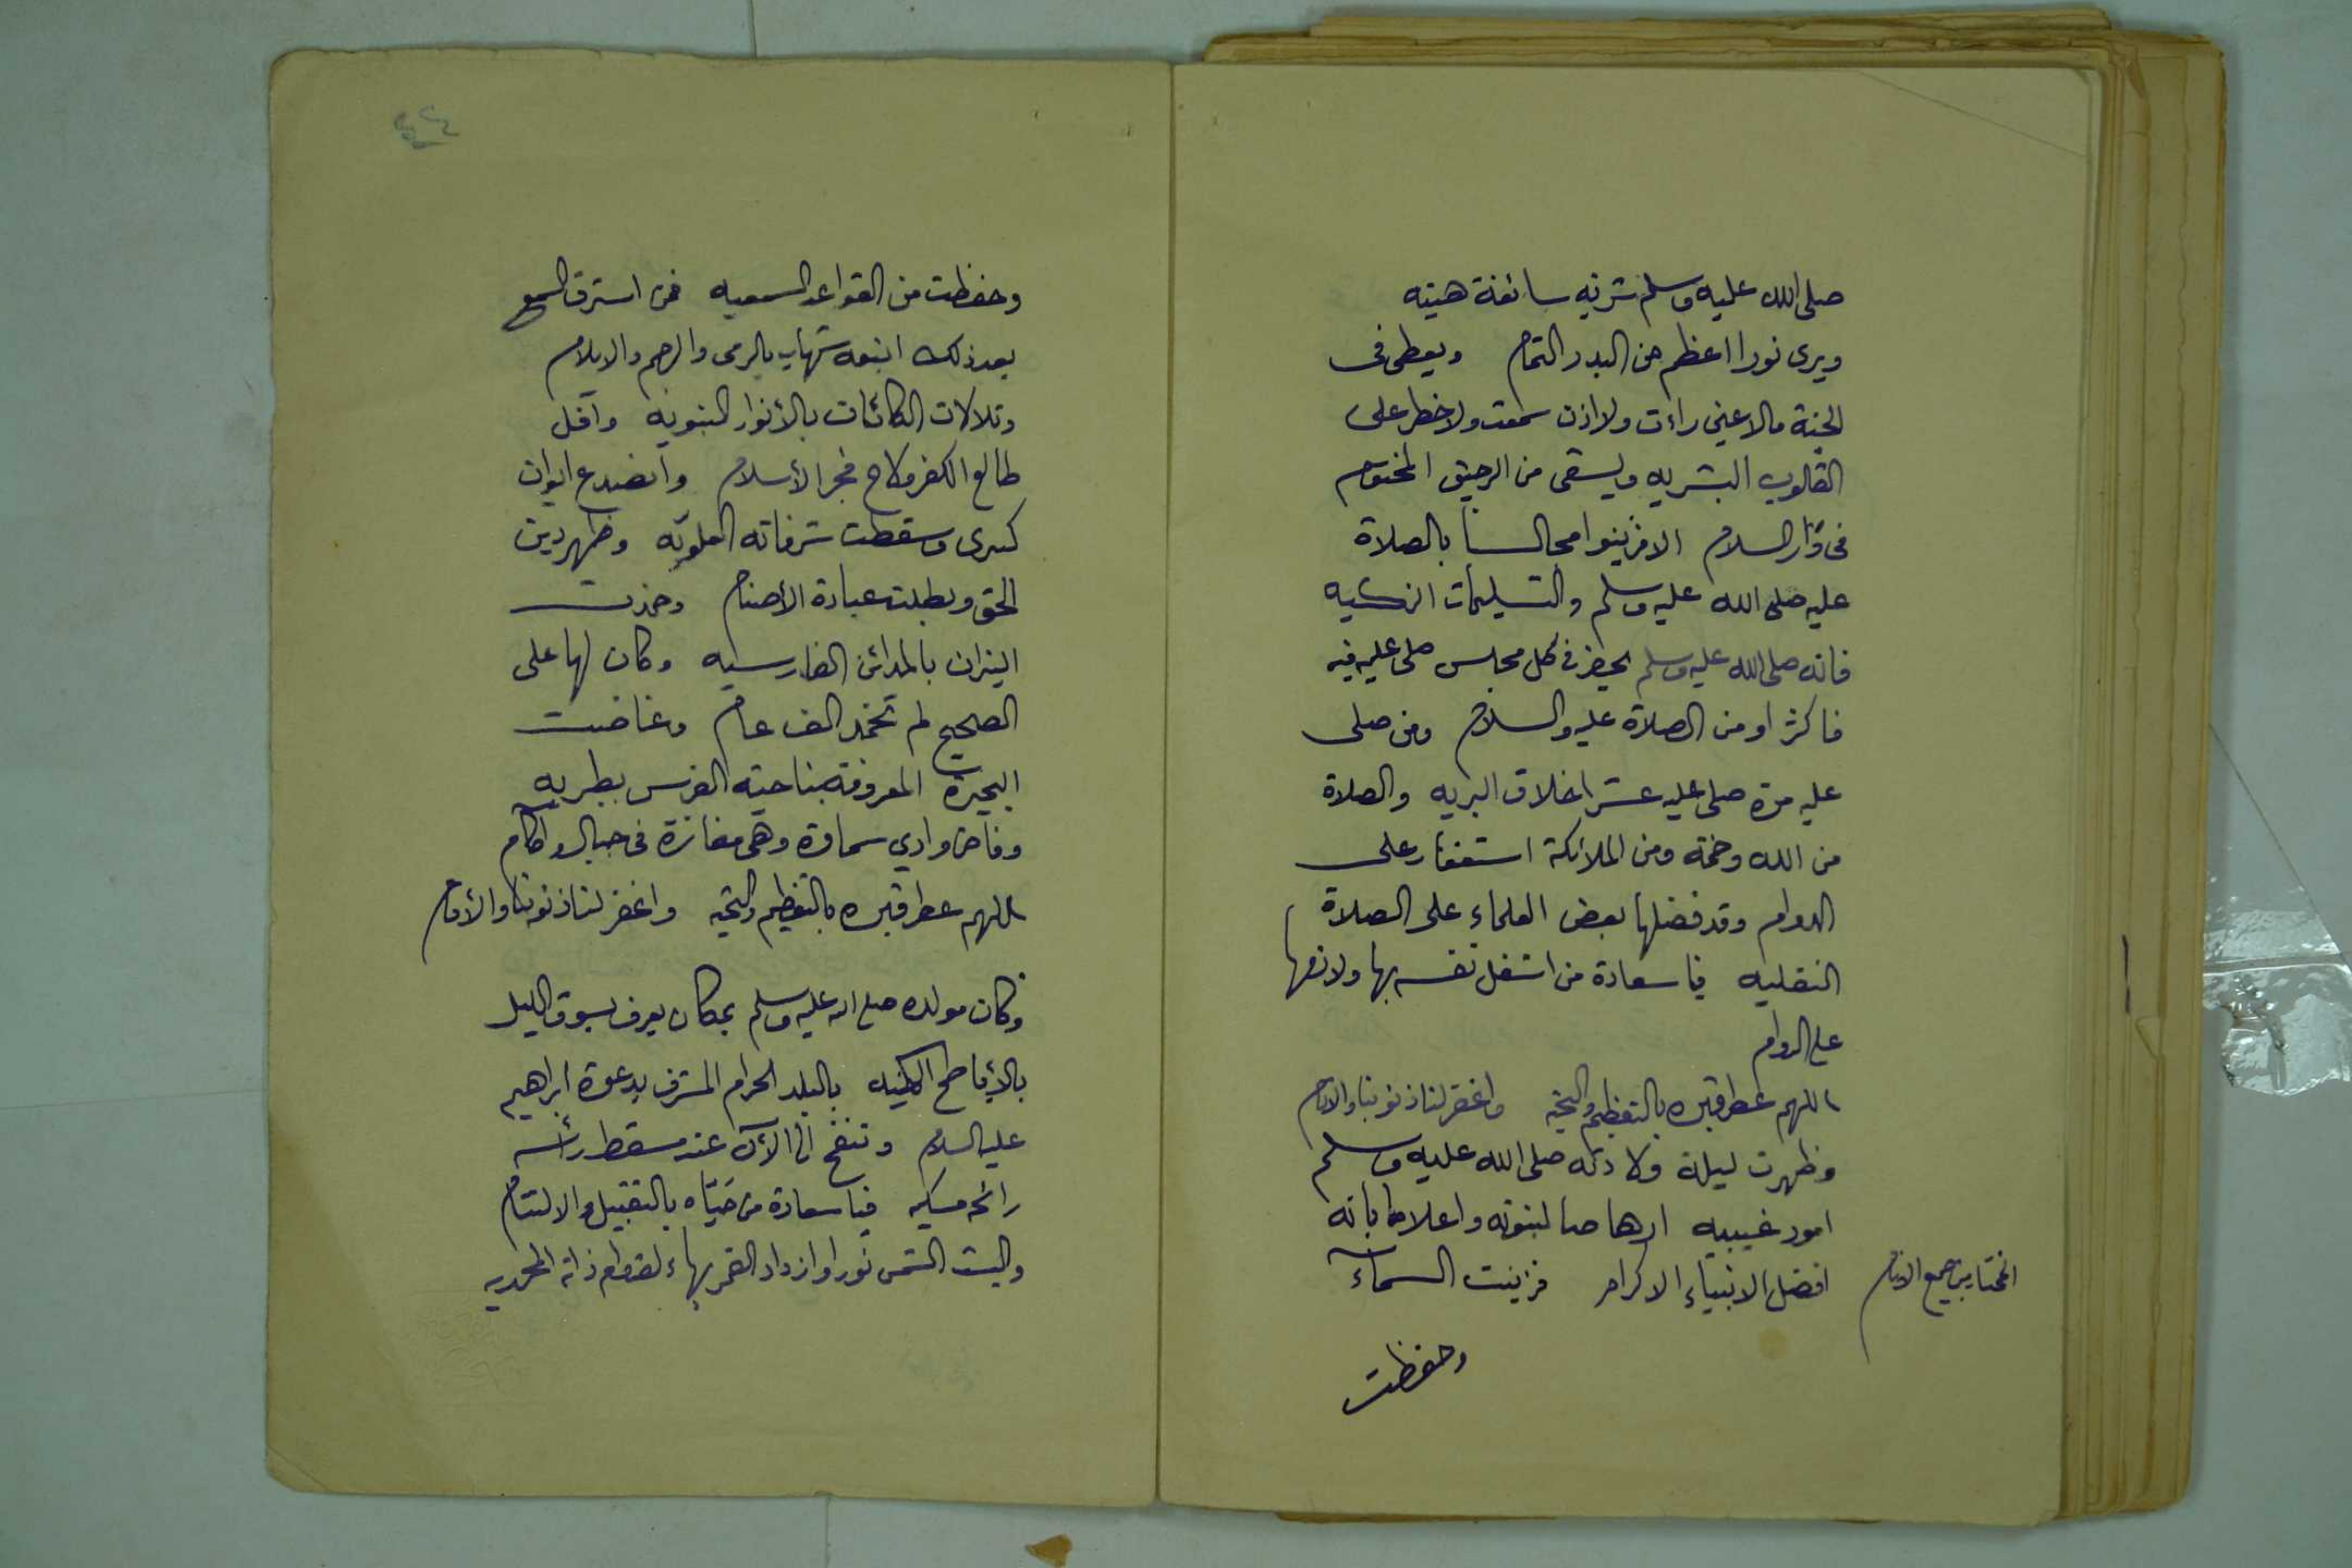 صلى الله عليه وسلم شربه سائغة هنيه
ويرى نورا اعظم من البدر التمام ويعطى فى
الجنة مالا عين راءت ولا اذن سمعت ولا خطر على
القلوب البشريه ويسقى من الرحيق المختوم
فى دار السلام الا فزينوا مجالسنا بالصلاة
عليه صلى الله عليه وسلم والتسليمات الزكيه
فانه صلى الله عليه وسلم يحضر فى كل مجلس صلى عليه فيه
فاكثراو من الصلاة عليه والسلام ومن صلى
عليه مرة صلى عليه عشرا خلاق البريه والصلاة
من الله رحمة ومن الملائكة استغفار على
الدوام وقد فضلها بعض العلماء على الصلاة
النفليه فيا سعادة من اشغل نفسه بها ولازمها
على الدوام
اللهم عطر قبره بالتعظيم والتحيه واغفر لنا ذنوبنا والاثام
وظهرت ليلة ولادته صلى الله عليه وسلم
امور غيبيه ارهاصا لنبوته واعلاما بانه
افضل الانبياء الاكرام فزينت السماء
المختار من جميع الانام
وحفظت
٤٢٤
وحفظت من القواعد السمعيه فمن استرق السمع
بعد ذلك اتبعه شهاب بالرمى والرجم والايلام
وتلالات الكائنات بالأنوار النبويه وأفل
طالع الكفر ولاح فجر الأسلام وأنصدع ايوان
كسرى وسقطت شرفاته العلويه وظهر دين
الحق وبطلت عبادة الأصنام وخمدت
النيران بالمدائن الفارسيه وكان لها على
الصحيح لم تخمد الف عام وغاضت
البحيرة المعروفة بناحية الفرس بطبريه
وفاض وادي سماوة وهى مفازة فى جبال واكام
اللهم عطر قبره بالتعظيم والتحيه واغفر لنا ذنوبنا والأثام
وكان مولده صلى الله عليه وسلم بمكان يعرف بسوق الليل
بالأباطح المكيه بالبلد الحرام المشرف بدعوة ابراهيم
عليه السلام وتنفح الى الأن عند مسقط رأسه
رائحه مسكيه فيا سعادة من حيّاه بالتقبيل والالتثام
والبست الشمس نورا وازداد القمر بهاء لقدوم ذاته المحمديه